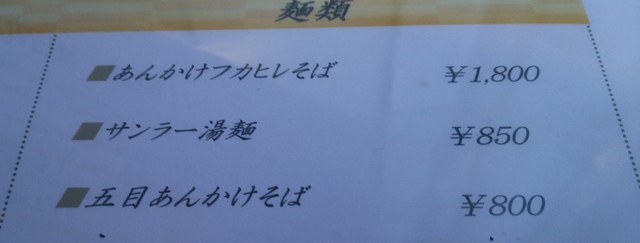 麺類
■あんかけフカヒレそば ￥1,800
■サンラー湯麺 ￥850
■五目あんかけそば ￥800